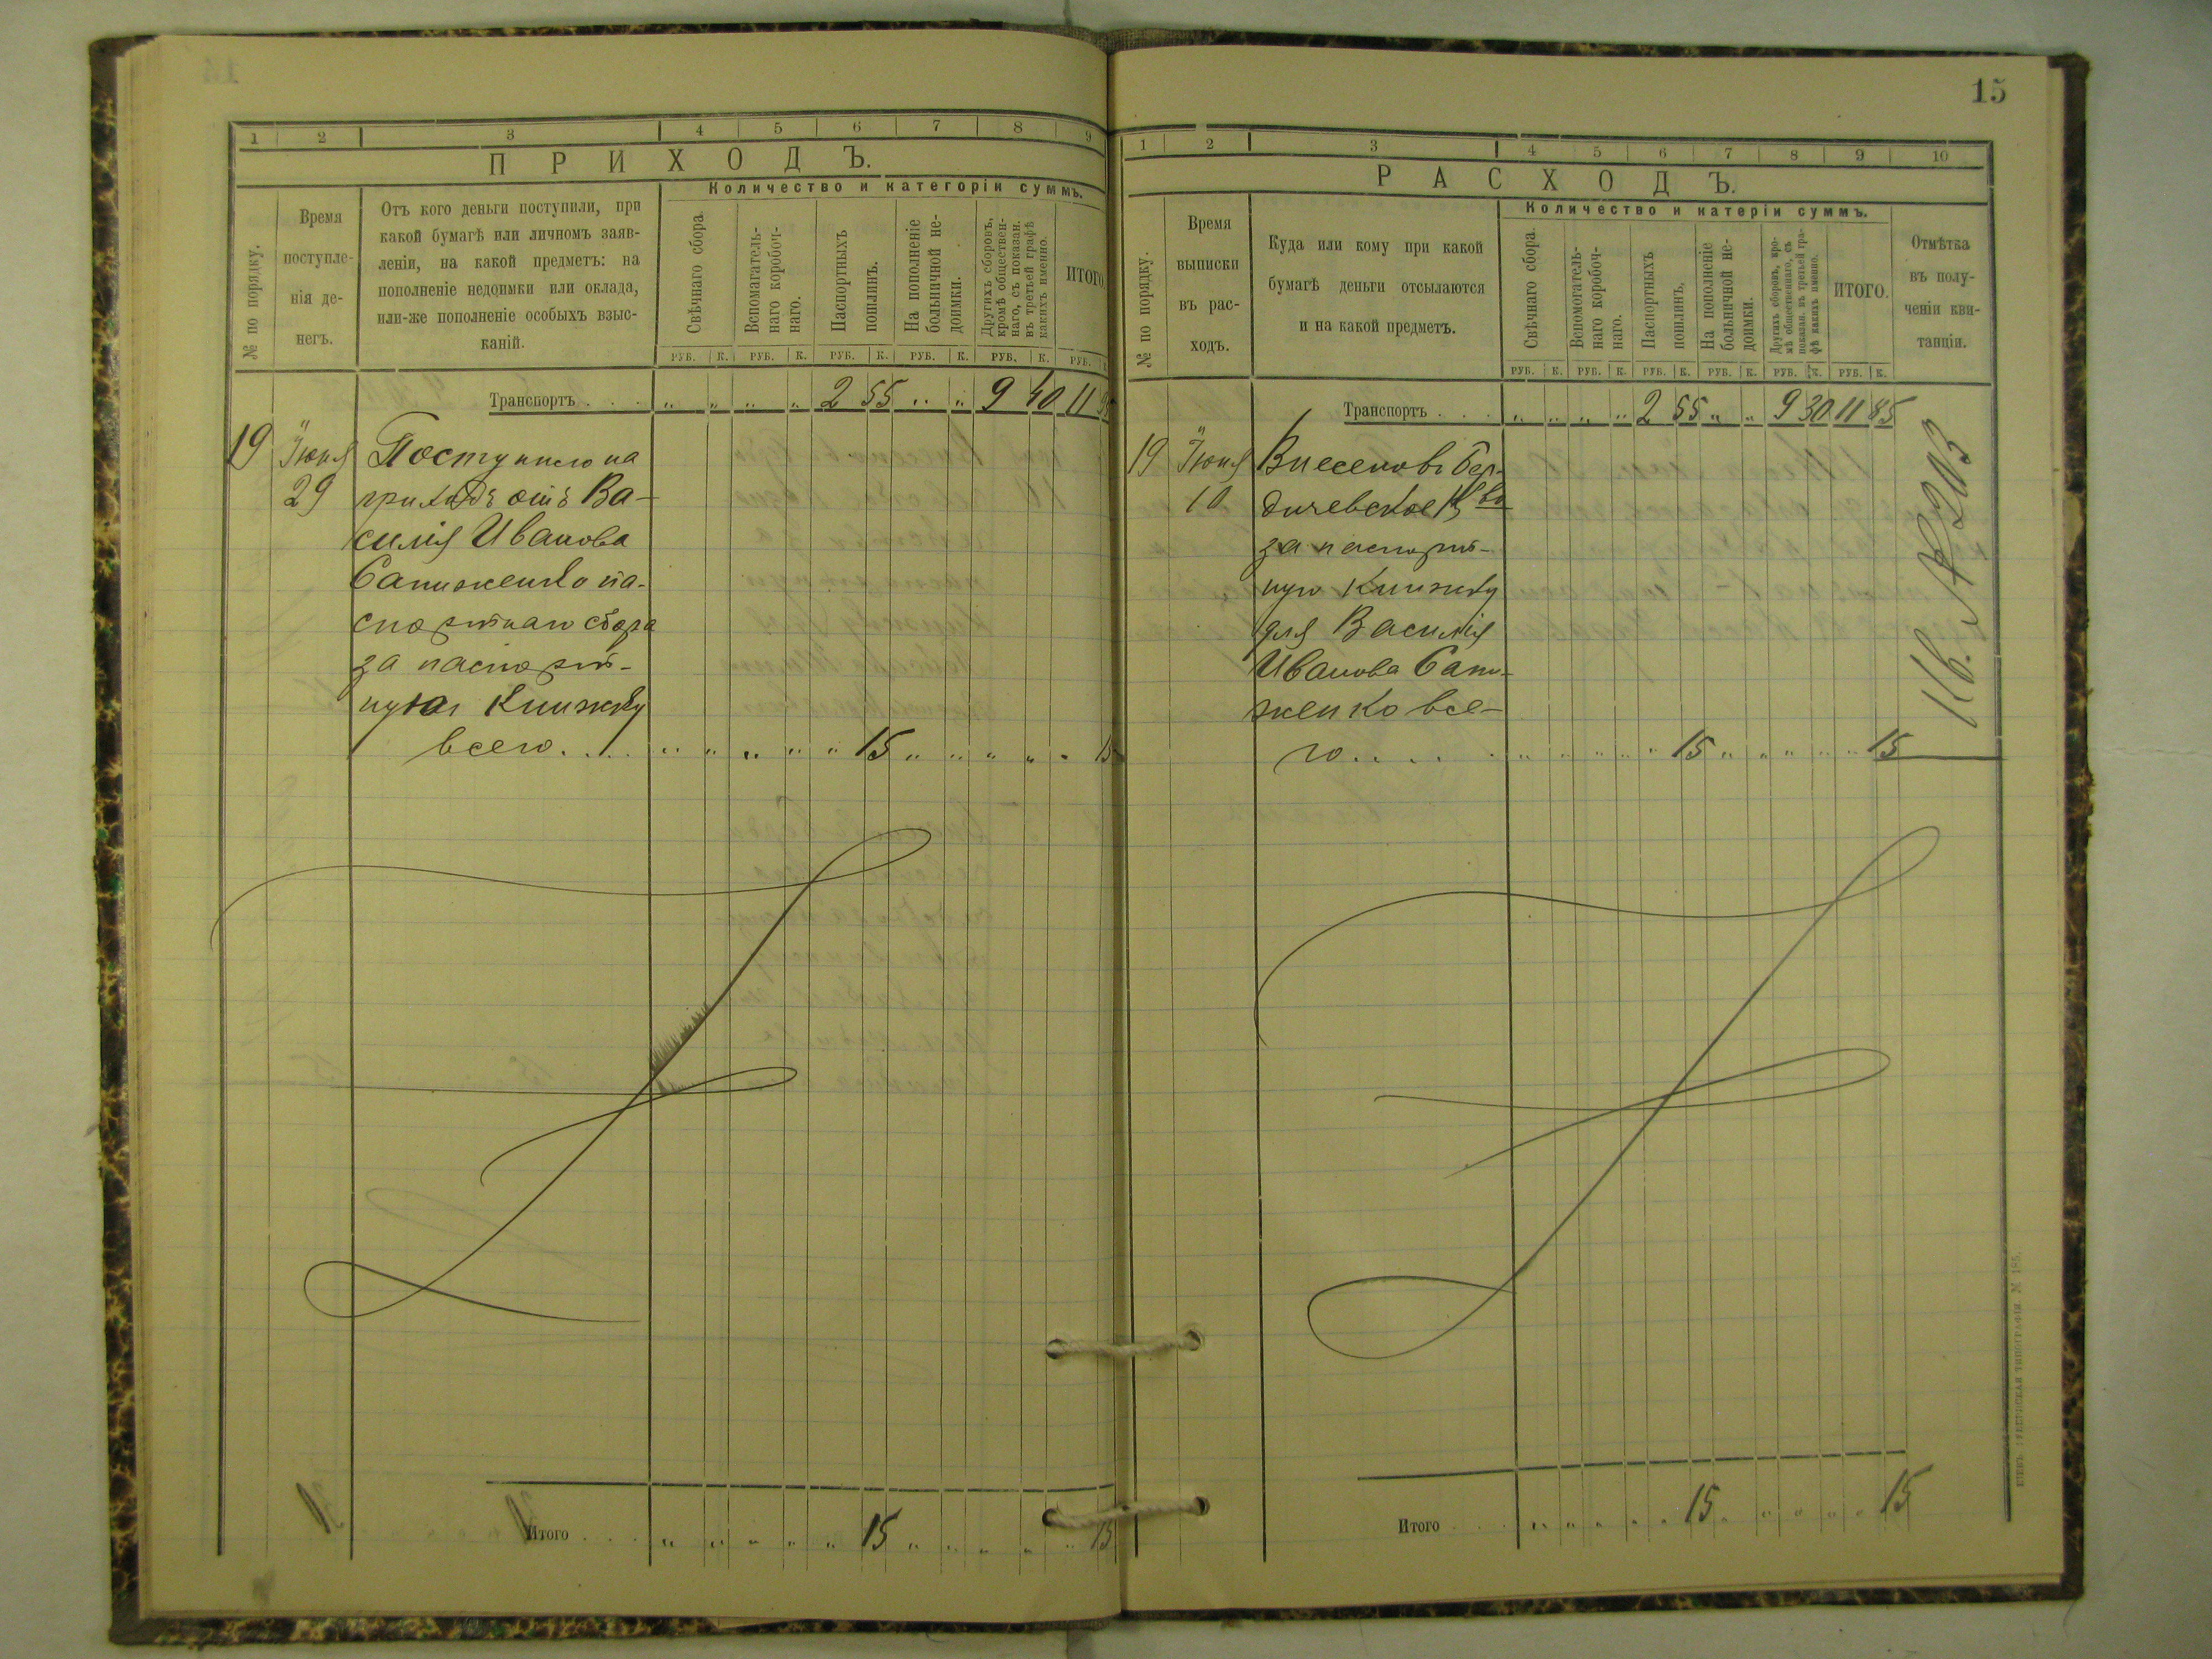 1 2 3 4 5 6 7 8 9
ПРИХОДЪ.
№ по порядку.
Время
поступле-
нія де-
негъ.
Отъ кого деньги поступили, при
какой бумагѣ или личномъ заяв-
леніи, на какой предметъ: на
пополненіе недоимки или оклада,
или-же пополненіе особыхъ взыс-
каній.
Количество и категоріи суммъ.
Свѣчнаго сбора.
Вспомагатель-
наго коробоч-
наго.
Паспортныхъ
пошлинъ.
На пополненіе
больничной не-
доимки.
Другихъ сборовъ,
кромѣ обществен-
наго, съ показан.
въ третьей графѣ
какихъ именно.
ИТОГО.
РУБ. К. РУБ. К. РУБ. К. РУБ. К. РУБ. К. РУБ.
Транспортъ . . . „ „ „ „ 2 55 „ „ 9 40 11
19 Іюня Поступило на
29 приходъ отъ Ва-
силія Иванова
Сапиженко па-
спортнаго сбора
за паспорт-
ную книжку
всего . . . . „ „ „ „ „ 15 „ „ „ „ „ 15
Итого . . . „ „ „ „ „ 15 „ „ „ „ „ 15
15
1 2 3 4 5 6 7 8 9 10
РАСХОДЪ.
№ по порядку.
Время
выписки
въ рас-
ходъ.
Куда или кому при какой
бумагѣ деньги отсылаются
и на какой предметъ.
Количество и катеріи суммъ.
Свѣчнаго сбора.
Вспомогатель-
наго коробоч-
наго.
Паспортныхъ
пошлинъ.
На пополненіе
больничной не-
доимки.
Другихъ сборовъ, кро-
мѣ общественнаго, съ
показан. въ третьей гра-
фѣ какихъ именно.
ИТОГО.
Отмѣтка
въ полу-
ченіи кви-
танціи.
РУБ. К. РУБ. К. РУБ. К. РУБ. К. РУБ. К. РУБ. К.
Транспортъ . . . „ „ „ „ 2 55 „ „ 9 30 11 85
19 Іюня Внесено въ Бер-
10 дичевское К-во
за паспорт-
ную книжку
для Василія
Иванова Сапи-
женко все-
го . . . . . „ „ „ „ „ 15 „ „ „ „ „ 15
Кв. №
Итого . . . „ „ „ „ „ 15 „ „ „ „ „ 15